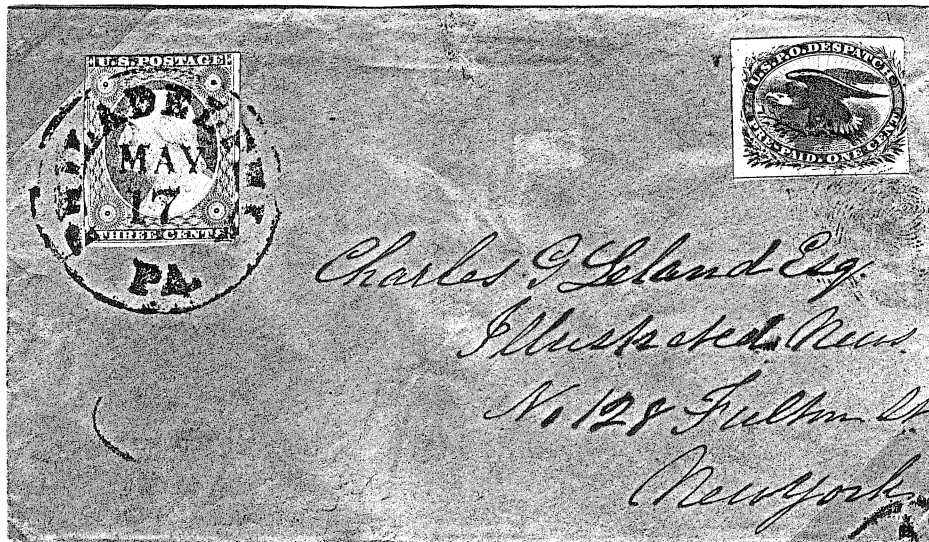 U.S. POSTAGE
THREE CENTS
PHILADELPHIA
MAY
17
PA.
U.S.P.O. DESPATCH
PRE-PAID. ONE CENT
Charles G Leland Esq.
Illustrated News
No 128 Fulton St
New York